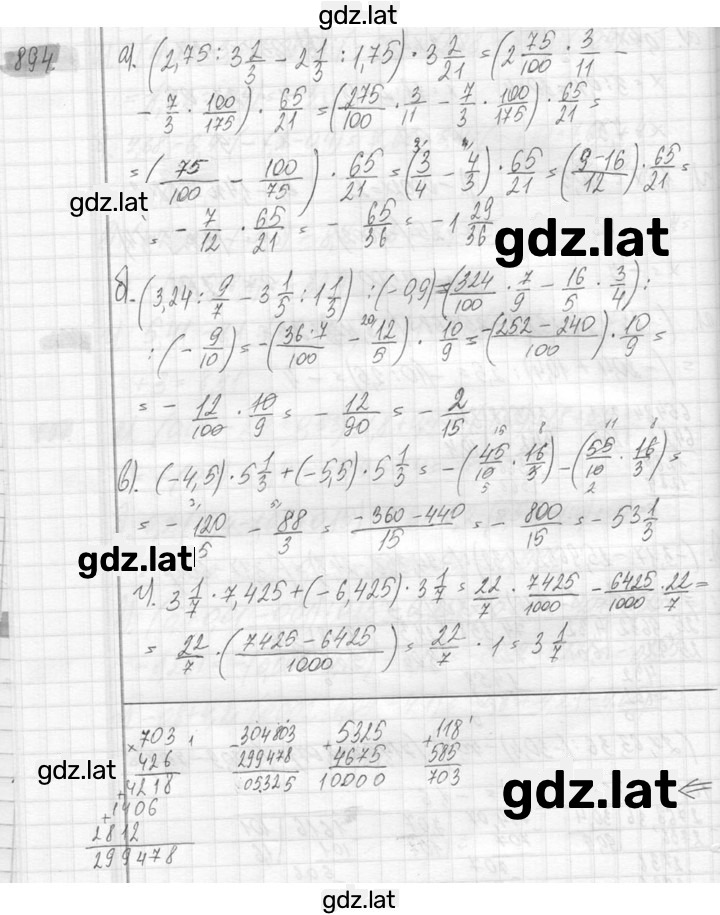 gdz.lat
894.
а). (2,75 : 3 2/3 − 2 1/3 : 1,75) · 3 2/21 = (2 75/100 · 3/11 −
− 7/3 · 100/175) · 65/21 = (275/100 · 3/11 − 7/3 · 100/175) · 65/21 =
= (75/100 − 100/75) · 65/21 = (3/4 − 4/3) · 65/21 = (9−16/12) · 65/21 =
gdz.lat
= − 7/12 · 65/21 = − 65/36 = −1 29/36
gdz.lat
б) −(3,24 : 9/7 − 3 1/5 : 1 1/3) : (−0,9) = (324/100 · 7/9 − 16/5 · 3/4) :
: (− 9/10) = −(36·7/100 − 12/5) · 10/9 = −(252 − 240/100) · 10/9 =
= − 12/100 · 10/9 = − 12/90 = − 2/15
в). (−4,5) · 5 1/3 + (−5,5) · 5 1/3 = −(45/10 · 16/3) − (55/10 · 16/3) =
= − 120/5 − 88/3 = −360−440/15 = − 800/15 = −53 1/3
gdz.lat
г). 3 1/7 · 7,425 + (−6,425) · 3 1/7 = 22/7 · 7425/1000 − 6425/1000 · 22/7 =
= 22/7 · (7425 − 6425/1000) = 22/7 · 1 = 3 1/7
×703 −304803 +5325 +118
426 299478 4675 585
+4218 05325 10000 703
gdz.lat
+1406
gdz.lat
2812
299478
gdz.lat